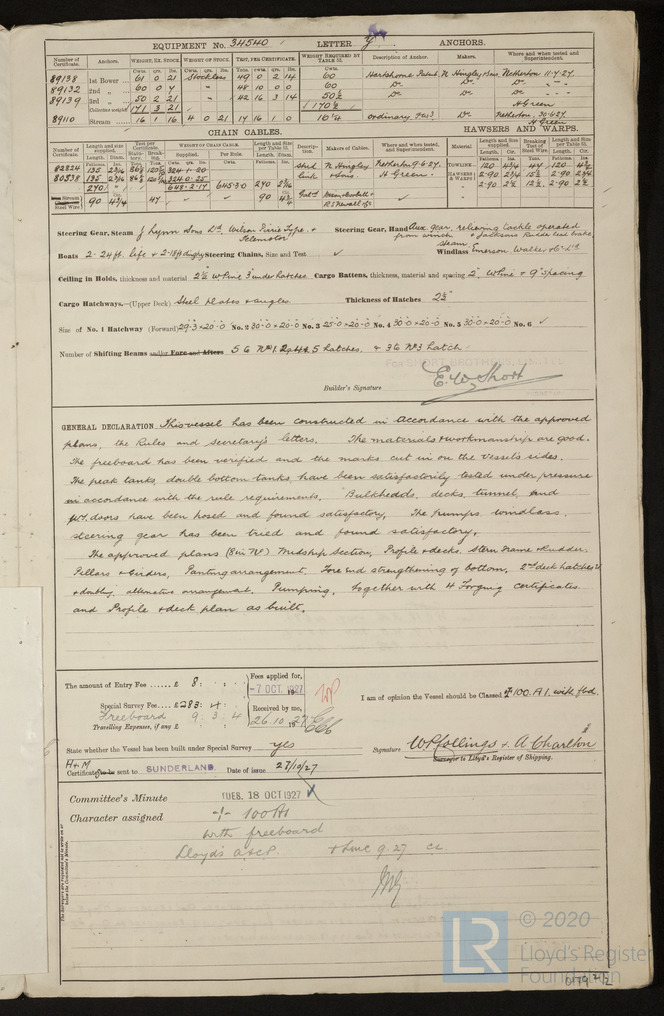 EQUIPMENT No. 34540 LETTER y ANCHORS.
Number of Certificate. Anchors. WEIGHT, EX. STOCK WEIGHT OF STOCK. TEST, PER CERTIFICATE. WEIGHT REQUIRED BY TABLE 31. Description of Anchor. Makers. Where and when tested and Superintendent.
Cwts. qrs. lbs. Cwts. qrs. lbs. Tons. Cwts. qrs. lbs. Cwts.
89138 1st Bower 61 0 21 Stockless 49 0 2 14 60 Hartshorne Patent N Hingley & Sons. Netherton 11.7.27.
89132 2nd „ 60 0 4 " 48 10 0 0 60 Do Do Do " "
89139 3rd „ 50 2 21 " 42 16 3 14 50½ Do Do Do " "
Collective weight 171 3 21 170½ H Green
89110 Stream 16 1 16 4 0 21 17 16 1 0 10¼ Ordinary Do Netherton, 30.6.27.
H Green
CHAIN CABLES. HAWSERS AND WARPS.
Number of Certificate. Length and size supplied. Test per Certificate. WEIGHT OF CHAIN CABLE. Length and Size per Table 31. Description. Makers of Cables. Where and when tested, and Superintendent. Material Length and Size supplied. Breaking Test of Steel Wire. Length and Size per Table 31.
82824 135 2 3/16 324.1.20 Stud N Hingley Netherton 9.6.27. TOWLINE 120 4¾ 44 120 4½
80538 135 2 3/16 324.0.25 link & Sons. H Green. HAWSERS & WARPS 2.90 2¾ 15½ 2.90 2¾
270 648.2.17 645.3.0 270 2 3/16 " 2.90 2½ 12½ 2.90 2½
Stream Steel Wire 90 4¾ 47 90
Steering Gear, Steam J Lynn & Sons Ltd Wilson Pirrie Type & Telemotor Steering Gear, Hand Aux gear, relieving tackle operated from winch
Boats 2-24ft. life & 2-18ft dinghy Steering Chains, Size and Test ✓ Windlass Steam Emerson Walker & Co Ltd.
Ceiling in Holds, thickness and material 2½" W Pine 3" under hatches Cargo Battens, thickness, material and spacing 2" W Pine & 9" spacing
Cargo Hatchways.—(Upper Deck) Steel plates & angles Thickness of Hatches 2½"
Size of No. 1 Hatchway (Forward) 29-3 × 20-0 No. 2 30-0 × 20-0 No. 3 25-0 × 20-0 No. 4 30-0 × 20-0 No. 5 30-0 × 20-0 No. 6 ✓
Number of Shifting Beams and/or Fore and Afters 5 to Nos 1, 2, 4 & 5 hatches. & 3 to No 3 hatch
For SHORT BROTHERS, LIMITED
Builder's Signature E. W. Short
GENERAL DECLARATION. This vessel has been constructed in accordance with the approved
plans, the Rules and Secretary's letters. The materials & workmanship are good.
The freeboard has been verified and the marks cut in on the vessels sides.
The peak tanks, double bottom tanks, have been satisfactorily tested under pressure
in accordance with the rule requirements. Bulkheads, decks, tunnel, and
W.T. doors have been hosed and found satisfactory. The pumps windlass.
steering gear has been tried and found satisfactory.
The approved plans (8 in No) Midship Section, Profile & decks. Stern Frame & Rudder.
Pillars & Girders, Panting arrangement, Fore end strengthening of bottom, 2nd deck hatches
& doubling, alternative arrangement. Pumping, together with 4 Forging certificates.
and Profile & deck plan as built.
The amount of Entry Fee ...... £ 8 : . : . Fees applied for,
-7 OCT. 1927
Special Survey Fee ... £ 283 : 4 : . Received by me,
Freeboard 9 . 3 . 4 26.10.1927
Travelling Expenses, if any £
I am of opinion the Vessel should be Classed ✠100.A1. with fbd.
State whether the Vessel has been built under Special Survey yes Signature W R Collings & A Charlton
Surveyor to Lloyd's Register of Shipping.
H & M
Certificate to be sent to SUNDERLAND. Date of issue 27/10/27
Committee's Minute TUES. 18 OCT 1927 ✓
Character assigned ✠ 100A1
with freeboard
Lloyd's A & C.P. + LMC 9.27 CL
The Surveyors are requested not to write on or below the Committee's Minute.
LR © 2020
Lloyd's Register
Foundation
0179 2/2